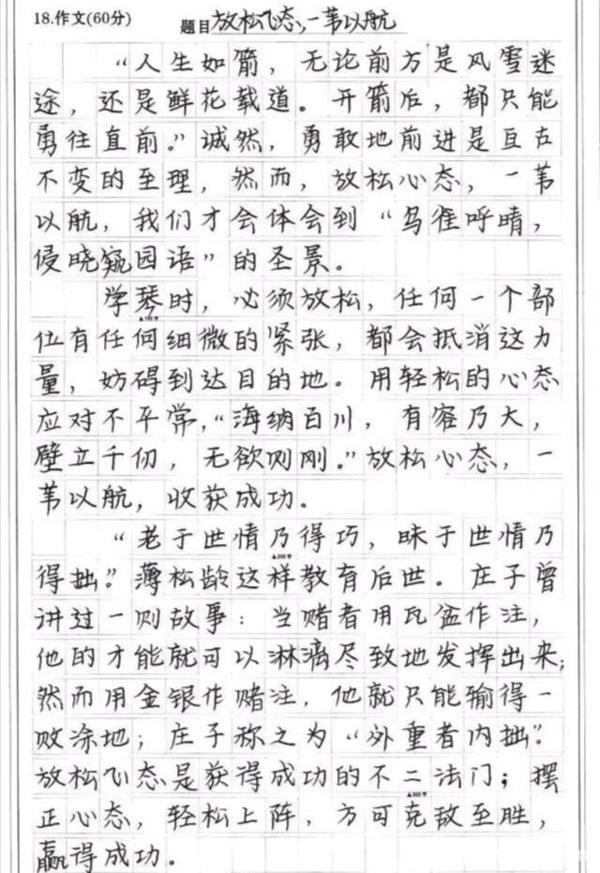 18.作文(60分) 题目 放松心态,一苇以航
“人生如箭，无论前方是风雪迷
途，还是鲜花载道。开箭后，都只能
勇往直前。”诚然，勇敢地前进是亘古
不变的至理，然而，放松心态，一苇
以航，我们才会体会到“鸟雀呼晴，
侵晓窥园语”的圣景。
学琴时，必须放松，任何一个部
位有任何细微的紧张，都会抵消这力
量，妨碍到达目的地。用轻松的心态
应对不平常，“海纳百川，有容乃大，
壁立千仞，无欲则刚。”放松心态，一
苇以航，收获成功。
“老于世情乃得巧，昧于世情乃
得拙。”薄松龄这样教育后世。庄子曾
讲过一则故事：当赌者用瓦盆作注，
他的才能就可以淋漓尽致地发挥出来；
然而用金银作赌注，他就只能输得一
败涂地；庄子称之为“外重者内拙”。
放松心态是获得成功的不二法门；摆
正心态，轻松上阵，方可克敌至胜，
赢得成功。